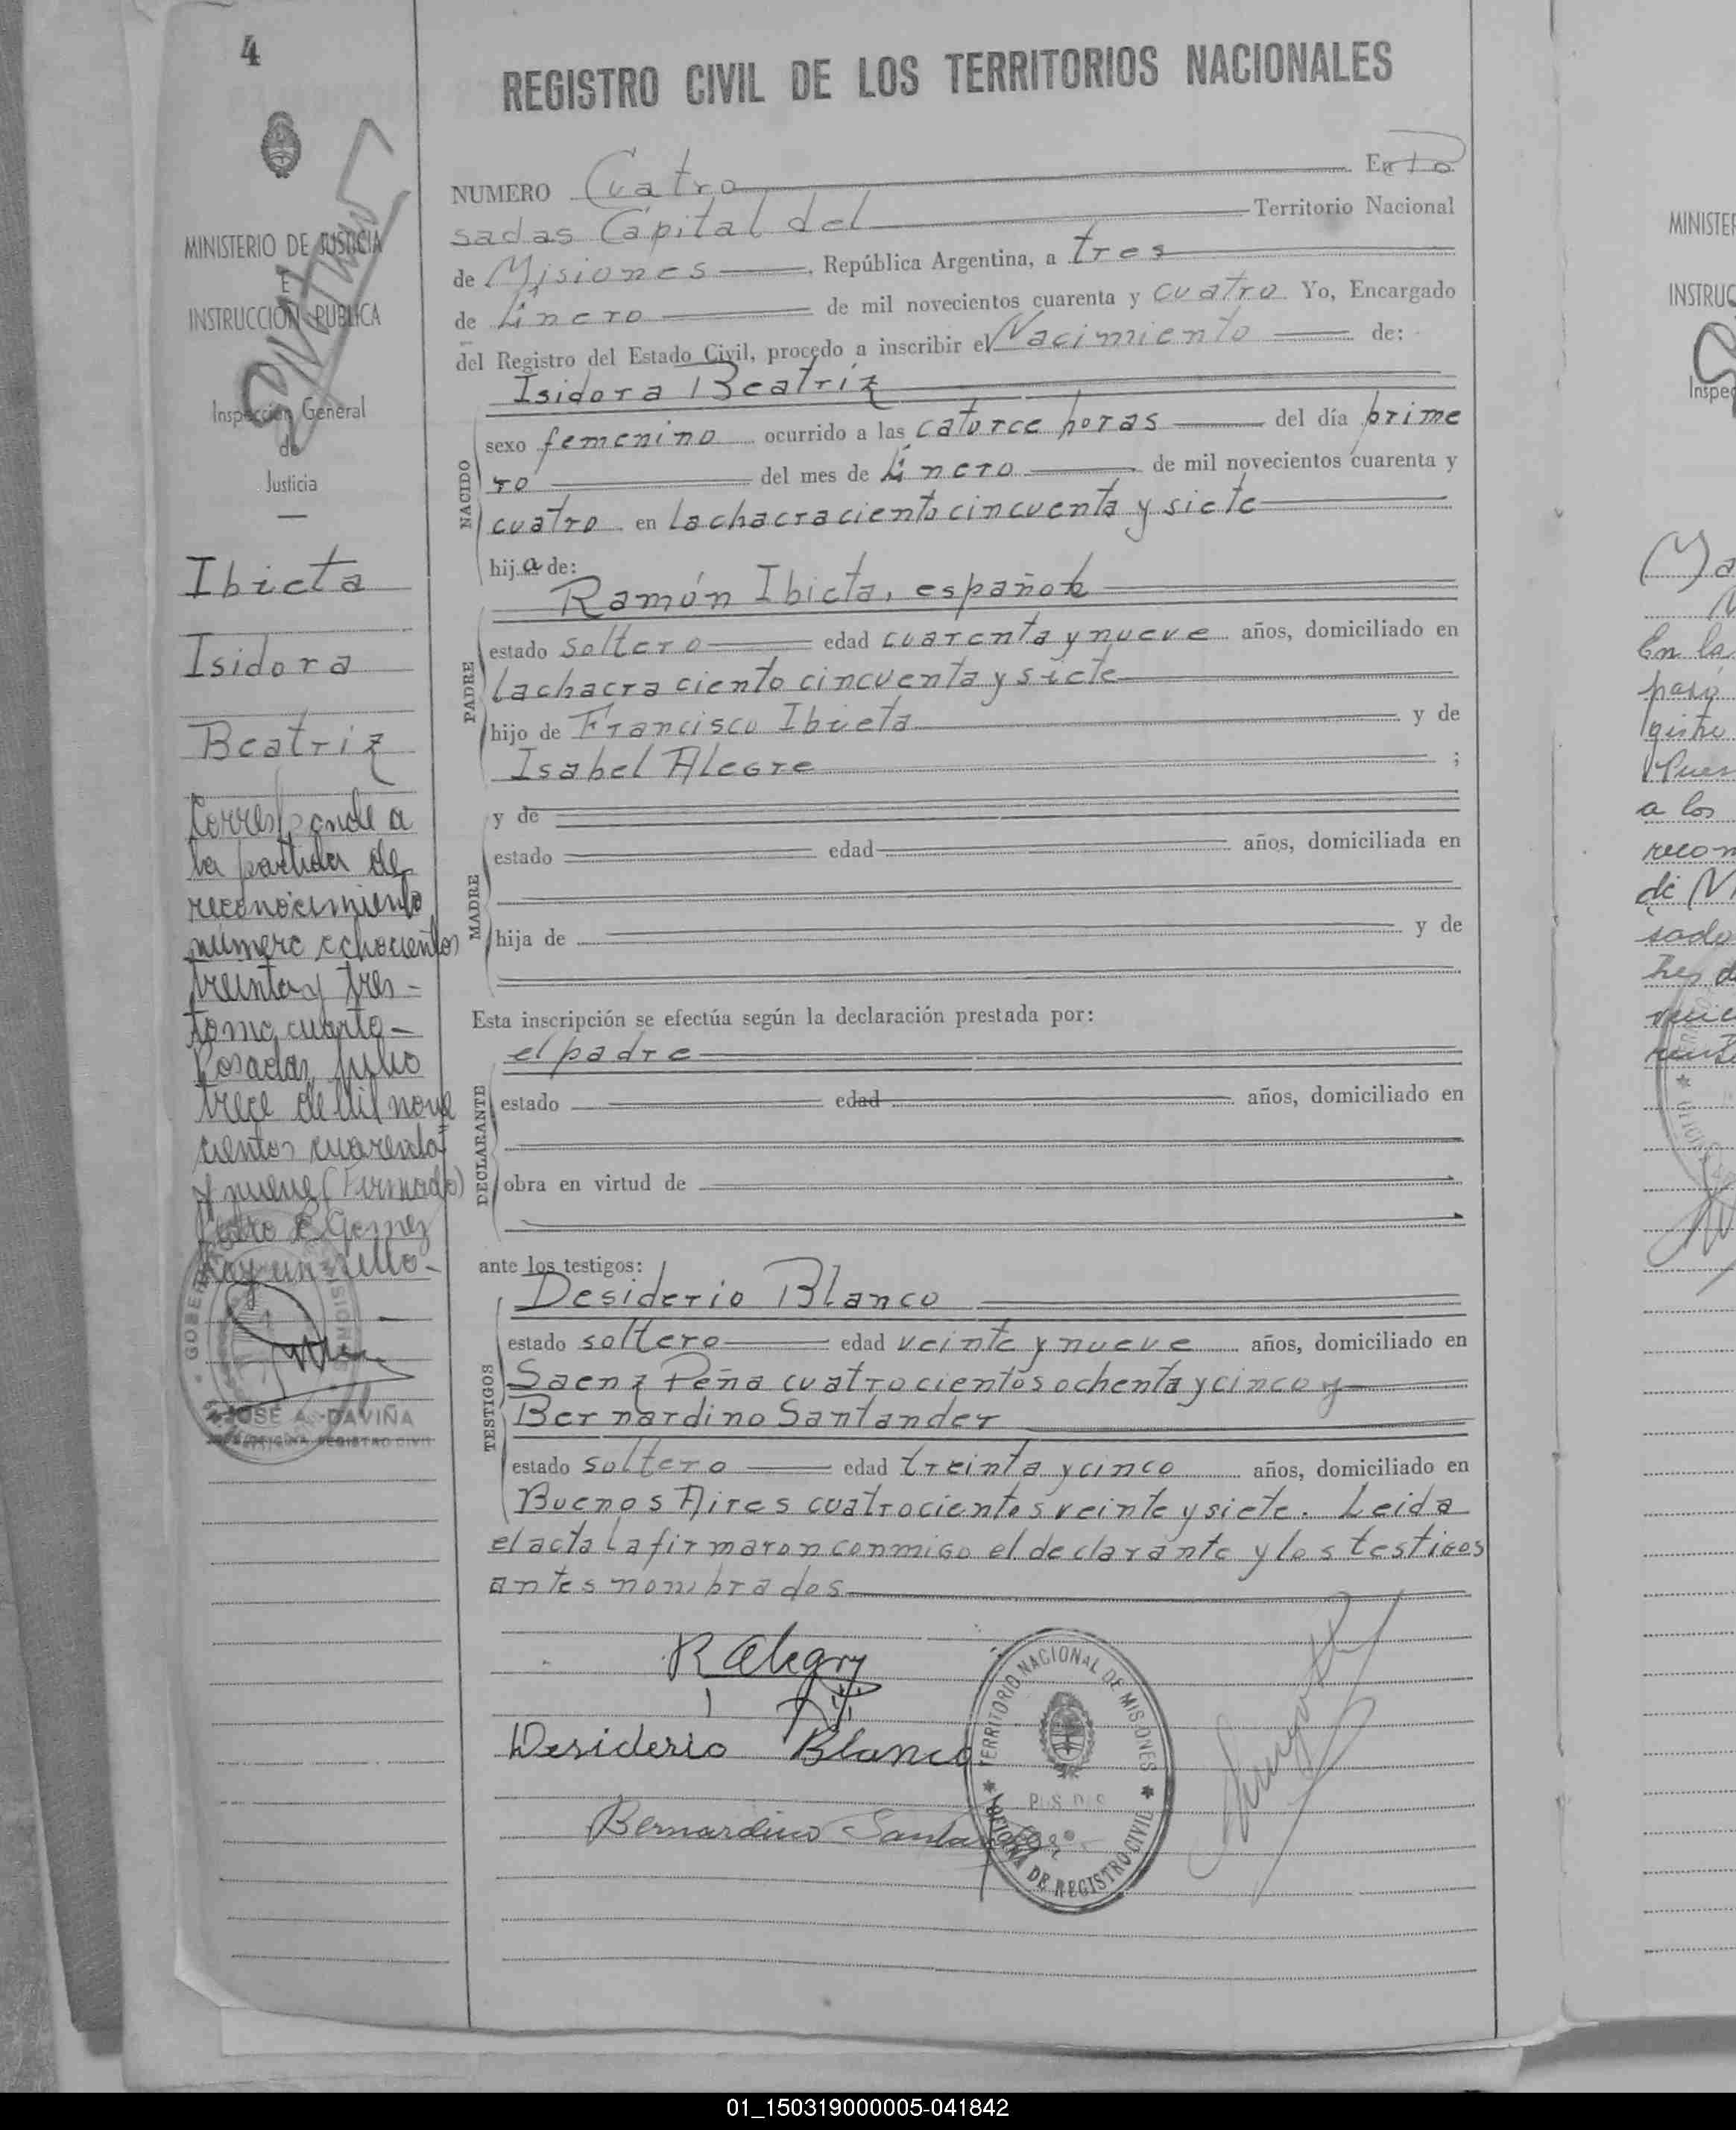 4
REGISTRO CIVIL DE LOS TERRITORIOS NACIONALES
NUMERO Cuatro En Po
sadas Capital del Territorio Nacional
de Misiones, República Argentina, a tres
de Enero de mil novecientos cuarenta y cuatro Yo, Encargado
del Registro del Estado Civil, procedo a inscribir el Nacimiento de:
Isidora Beatriz
NACIDO
sexo femenino ocurrido a las catorce horas del día prime
ro del mes de Enero de mil novecientos cuarenta y
cuatro en la chacra ciento cincuenta y siete
hija de:
Ramón Ibieta, español
PADRE
estado soltero edad cuarenta y nueve años, domiciliado en
la chacra ciento cincuenta y siete
hijo de Francisco Ibieta y de
Isabel Alegre ;
MADRE
y de
estado edad años, domiciliada en
hija de y de
Esta inscripción se efectúa según la declaración prestada por:
el padre
DECLARANTE
estado edad años, domiciliado en
obra en virtud de
ante los testigos:
Desiderio Blanco
TESTIGOS
estado soltero edad veinte y nueve años, domiciliado en
Saenz Peña cuatrocientos ochenta y cinco y
Bernardino Santander
estado soltero edad treinta y cinco años, domiciliado en
Buenos Aires cuatrocientos veinte y siete. Leida
el acta la firmaron conmigo el declarante y los testigos
antes nombrados
R Alegry
Desiderio Blanco
Bernardino Santander
TERRITORIO NACIONAL DE MISIONES
OFICINA DE REGISTRO CIVIL
MINISTERIO DE JUSTICIA
E
INSTRUCCIÓN PUBLICA
Inspección General
de
Justicia
Ibieta
Isidora
Beatriz
Corresponde a
la partida de
reconocimiento
número ochocientos
treinta y tres-
tomo cuarto-
Posadas, Julio
trece de Mil nove
cientos cuarenta
y nueve (Firmado)
Pedro E Gomez
hay un sello.-
JOSÉ A. DAVIÑA
REGISTRO CIVIL
MINISTER
INSTRUC
Inspec
En la
pasó
gistro
a los
recon
de M
01_150319000005-041842